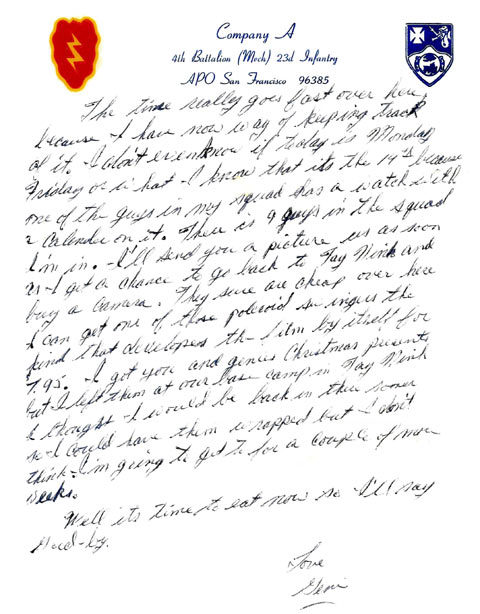 Company A
4th Battalion (Mech) 23d Infantry
APO San Francisco 96385
The time really goes fast over here
because I have now way of keeping track
of it. I don't even know if today is Monday
Friday or what I know that its the 14th because
one of the guys in my squad has a watch with
a Calender on it. There is 9 guys in the squad
I'm in. I'll send you a picture us as soon
as I get a chance to go back to Tay Nink and
buy a Camera. They sure are cheap over here
I can get one of those poleroid swingers the
kind that developes the film by itself for
7.95. I got you and genies Christmas presents
but I left them at our base camp in Tay Nink
I thought I would be back in their sooner
so I could have them wrapped but I don't
think I'm going to get to for a couple of more
weeks.
Well its time to eat now so I'll say
Good-by.
Love